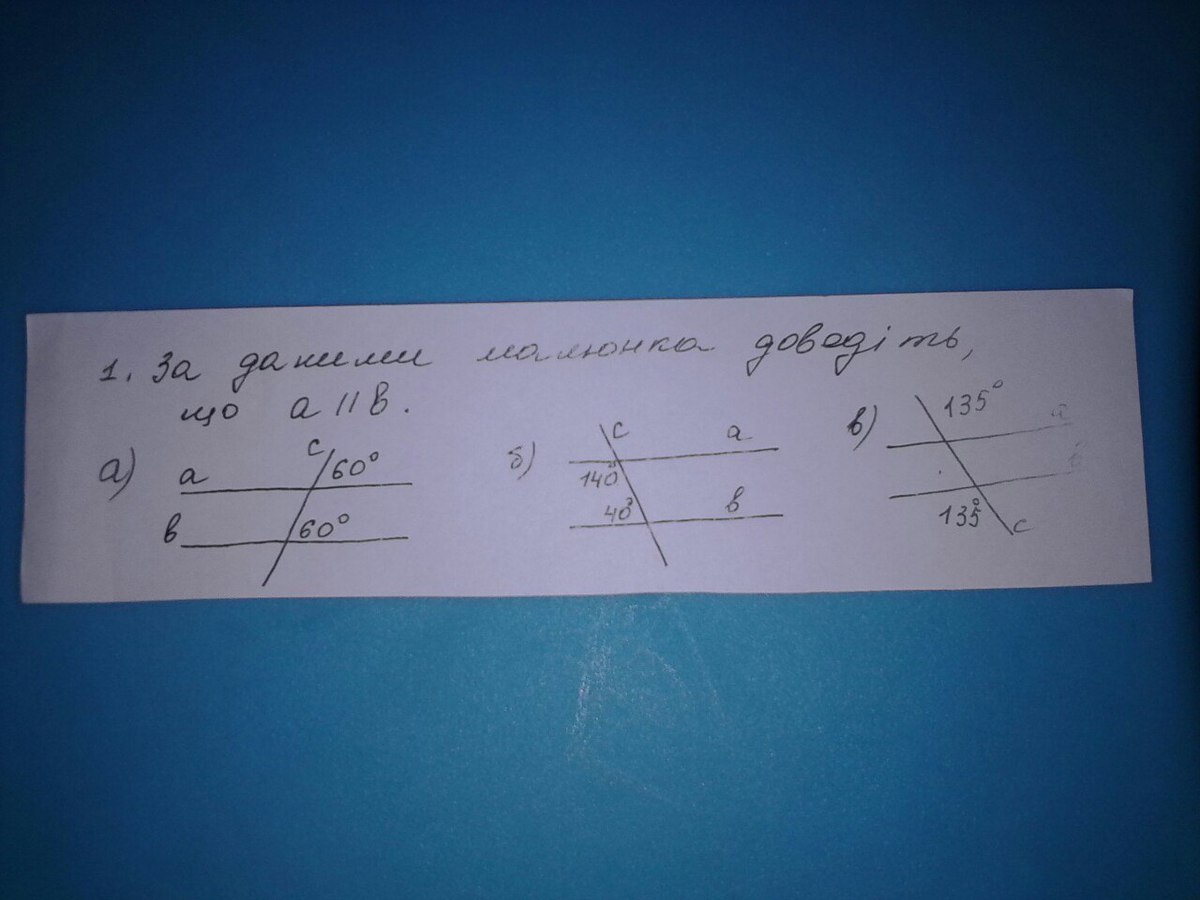 1. За даними малюнка доведіть,
що a || b.
а) a b c 60° 60°
б) c a b 140° 40°
в) 135° a b 135° c